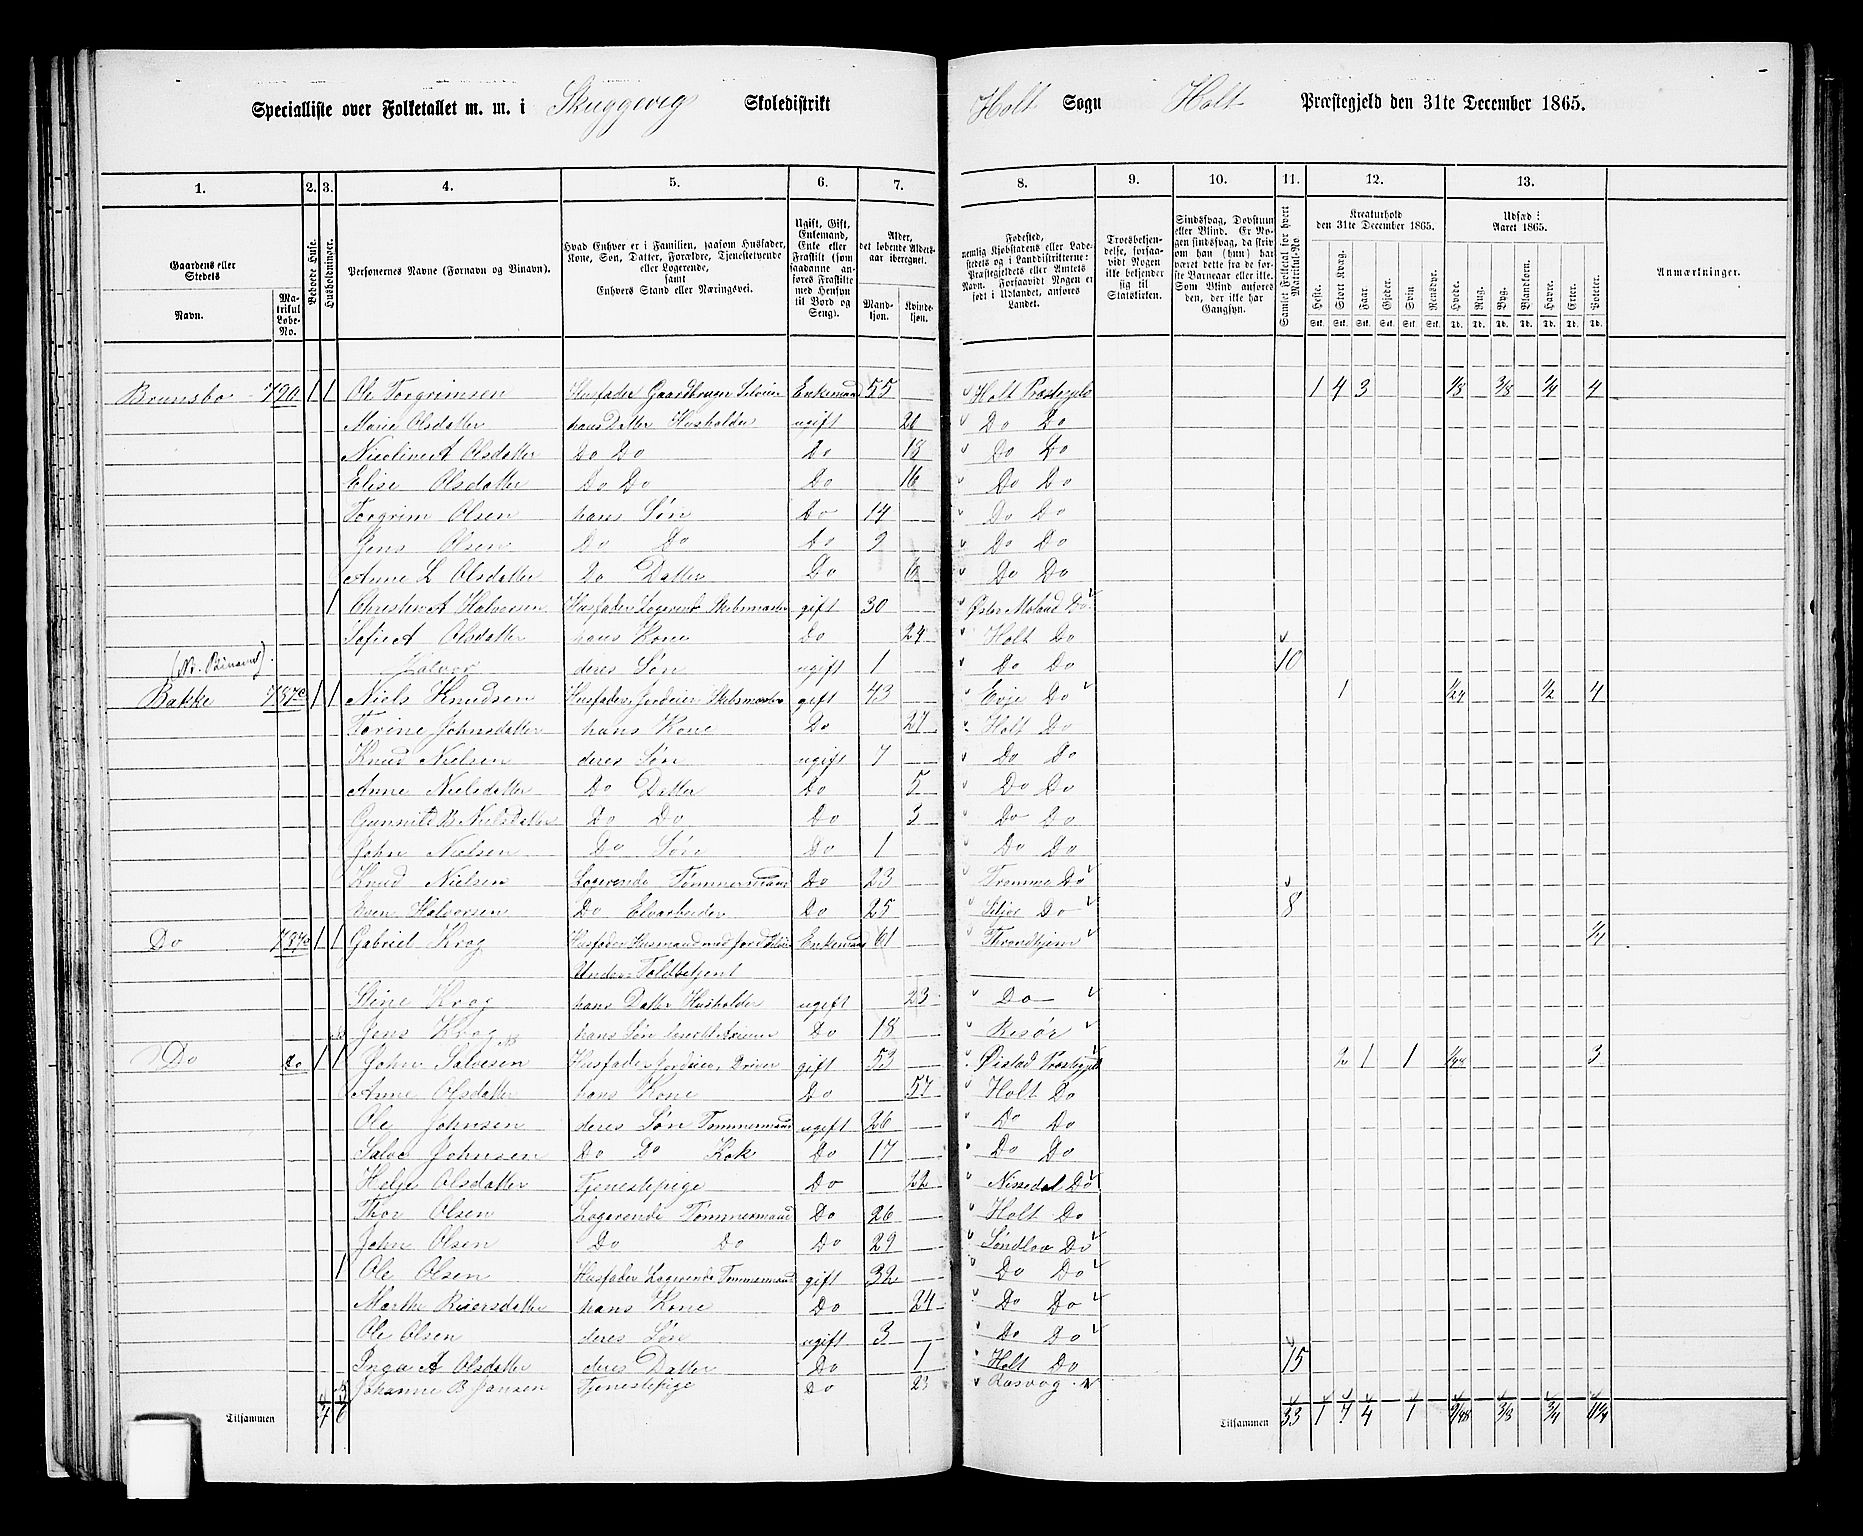 Specialliste over Folketallet m. m. i Skuggevig Skoledistrikt Holt Sogn Holt Præstegjeld den 31te December 1865.
1. 2. 3. 4. 5. 6. 7. 8. 9. 10. 11. 12. 13.
Gaardens eller Stedets Navn. Matrikul Løbe-No. Beboede Huse. Husholdninger. Personernes Navne (Fornavn og Binavn). Hvad Enhver er i Familien, saasom Husfader, Kone, Søn, Datter, Forældre, Tjenestetyende eller Logerende, samt Enhvers Stand eller Næringsvei. Ugift, Gift, Enkemand, Enke eller Fraskilt (som saadanne anføres Fraskilte med Hensyn til Bord og Seng). Alder, det løbende Aldersaar iberegnet. Mandkjøn. Kvindekjøn. Fødested, nemlig Kjøbstadens eller Ladestedets og i Landdistrikterne: Præstegjeldets eller Amtets Navn. Forsaavidt Nogen er født i Udlandet, anføres Landet. Troesbekjendelse, forsaavidt Nogen ikke bekjender sig til Statskirken. Sindssvag, Døvstum eller Blind. Er Nogen sindssvag, da skriv om han (hun) har været dette fra de første Barneaar eller ikke. Som Blind anføres den, der ikke har Gangsyn. Samlet Folketal for hvert Matrikul-No. Kreaturhold den 31te December 1865. Heste. Stort Kvæg. Faar. Gjeder. Svin. Rensdyr. Udsæd i Aaret 1865. Hvede. Rug. Byg. Blandkorn. Havre. Erter. Poteter. Anmærkninger.
Brunsbo 790 1 1 Ole Torgrimsen Husfader Gaardbruger Selveier Enkemand 55 Holt Præstegjeld 1 4 3 1/8 3/8 1/4 4
Marie Olsdatter hans Datter Husholder ugift 20 Do Do
Nicoline A Olsdatter Do Do Do 18 Do Do
Elise Olsdatter Do Do Do 16 Do Do
Torgrim Olsen hans Søn Do 14 Do Do
Jens Olsen Do Do Do 9 Do Do
Anne L Olsdatter Do Datter Do 6 Do Do
1 Christen A Halvorsen Husfader Logerende Skibsmaster gift 30 Øster Moland Do
Sofie A Olsdatter hans Kone Do 24 Holt Do
Halvor deres Søn ugift 1 Do Do 10
Bakke 787c 1 1 Niels Knudsen Husfader Jordeier gift 43 Evje Do 1 1/24 1/2 4
Torine Johnsdatter hans Kone Do 27 Holt Do
Knud Nielsen deres Søn ugift 7 Do Do
Anne Nielsdatter Do Datter Do 5 Do Do
Gunnild B Nielsdatter Do Do Do 3 Do Do
John Nielsen Do Søn Do 1 Do Do
Knud Nielsen Logerende Tømmermand Do 23 Tromme Do
Even Halvorsen Do Elvarbeider Do 25 Do 8
Do 787c 1 1 Gabriel Krog Husfader Husmand med Jord Enkemand 61 Throndhjem 1/4
Under Toldbetjent
Stine Krog hans Datter Husholder ugift 23 Do
Jens Krog hans Søn Do 18 Risør
Do Do 1 1 John Salvesen Husfader Jordeier Driver gift 53 Øistad Præstegjeld 2 1 1 3
Anne Olsdatter hans Kone Do 57 Holt Do
Ole Johnsen deres Søn Tømmermand ugift 26 Do Do
Salve Johnsen Do Do Kok Do 17 Do Do
Helje Olsdatter Tjenestepige Do 22 Nissedal Do
Thor Olsen Logerende Tømmermand Do 26 Holt Do
John Olsen Do Do Do 29 Søndlou Do
1 Ole Olsen Husfader Logerende Tømmermand gift 32 Do Do
Marthe Reiersdatter hans Kone Do 24 Do Do
Ole Olsen deres Søn ugift 3 Do Do
Inga A Olsdatter deres Datter Do 1 Holt Do 15
Johanne B Jansen Tjenestepige Do 23
Tilsammen Tilsammen 33 1 7 4 1 9/48 3/8 3/4 11 1/4